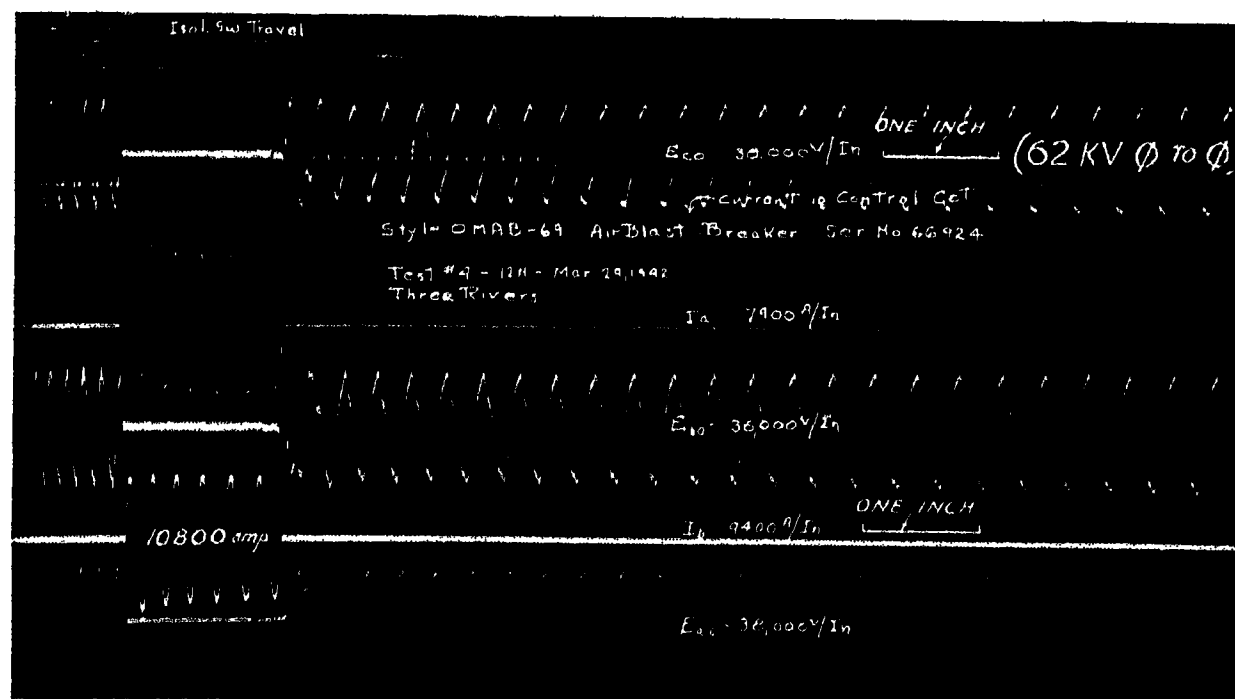 Isol. Sw Travel
ONE INCH
Eco 38,000 V/In (62 KV Ø TO Ø)
Current in Control Ckt
Style OMAB-69 Air Blast Breaker Ser No 66924
Test #4 - 12H - Mar 29, 1942
Three Rivers
Ia 7900 A/In
36,000 V/In
ONE INCH
10800 amp
Ib 9400 A/In
38,000 V/In